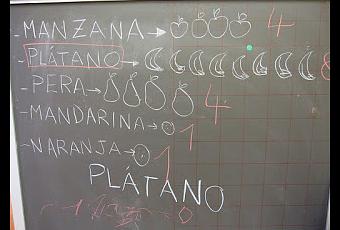 - MANZANA → 4
- PLÁTANO → 8
- PERA → 4
- MANDARINA → 1
- NARANJA → 1
PLÁTANO